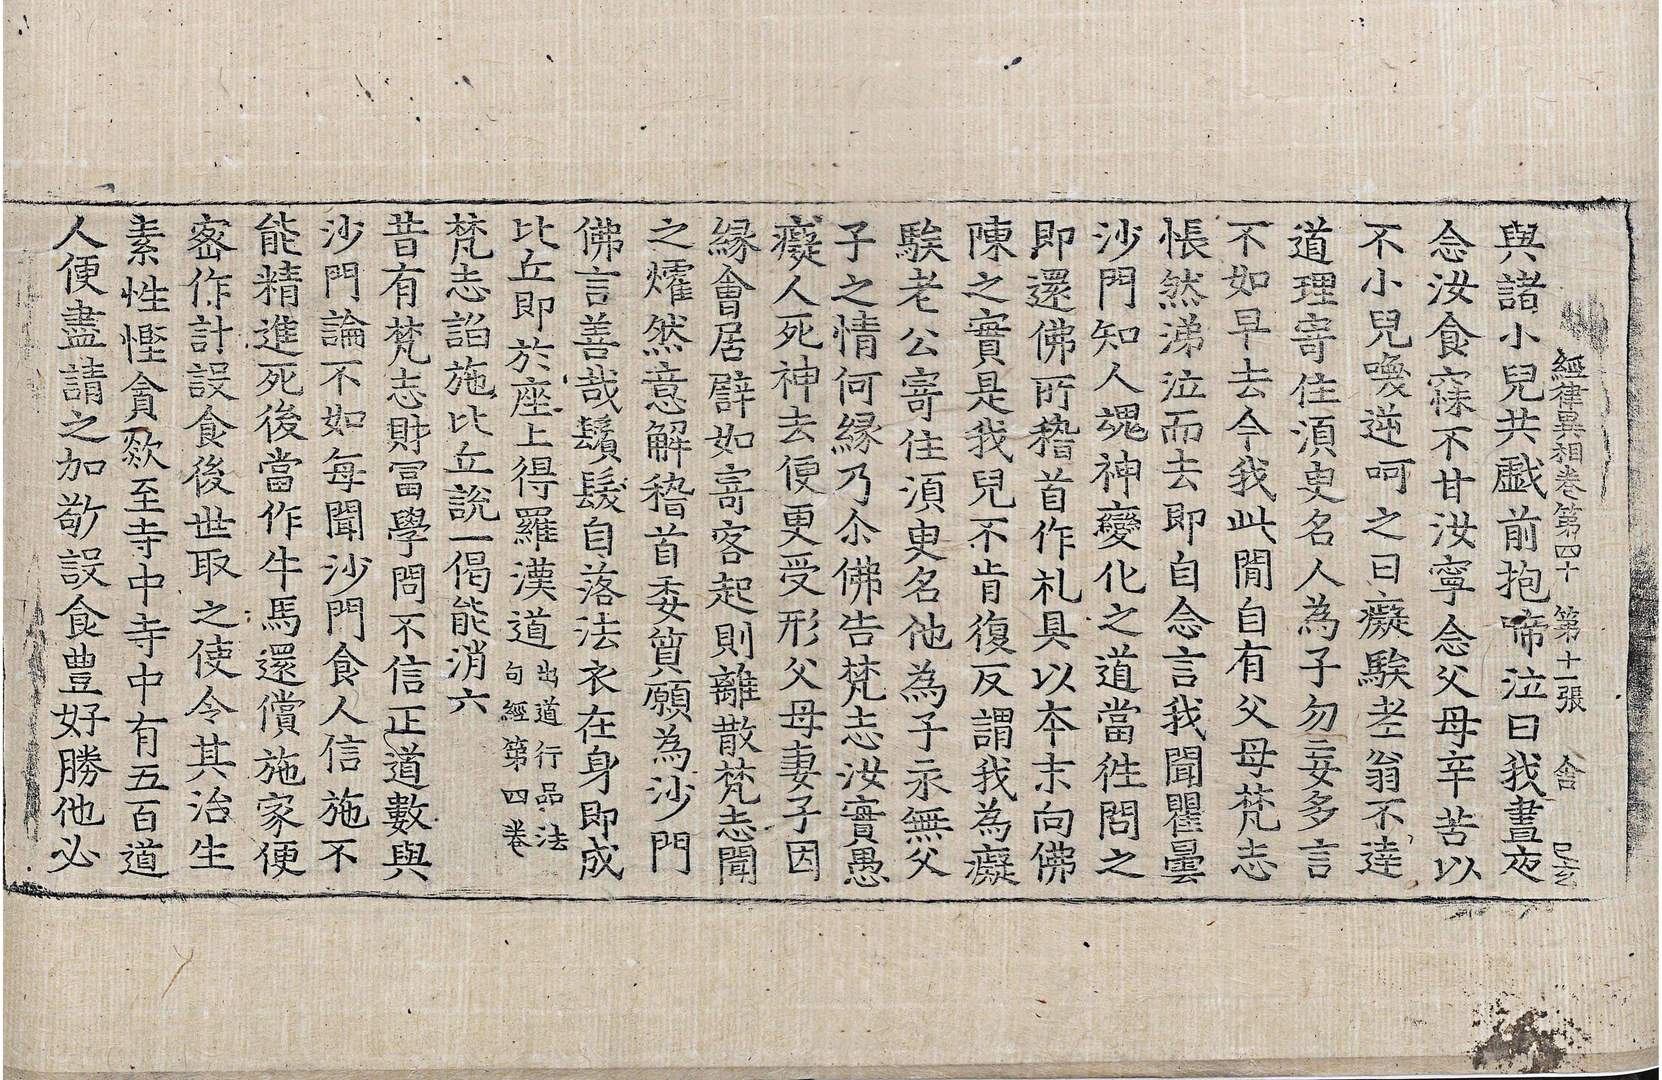 經律異相卷第四十　第十一張　舍
與諸小兒共戱前抱啼泣曰我晝夜
念汝食寐不甘汝寧念父母辛苦以
不小兒喚逆呵之曰癡騃老翁不達
道理寄住湏臾名人為子勿妄多言
不如早去今我此閒自有父母梵志
悵然涕泣而去即自念言我聞瞿曇
沙門知人魂神變化之道當徃問之
即還佛所稽首作礼具以本末向佛
陳之實是我兒不肯復反謂我為癡
騃老公寄住湏臾名他為子永無父
子之情何緣乃尒佛告梵志汝實愚
癡人死神去便更受形父母妻子因
緣會居譬如寄客起則離散梵志聞
之㸌然意解稽首委質願為沙門
佛言善哉鬚髮自落法衣在身即成
比丘即於座上得羅漢道出道行品法句經第四卷
梵志諂施比丘說一偈能消六
昔有梵志財冨學問不信正道數與
沙門論不如每聞沙門食人信施不
能精進死後當作牛馬還償施家便
宻作計設食後世取之使令其治生
素性慳貪欻至寺中寺中有五百道
人便盡請之加敬設食豊好勝他必